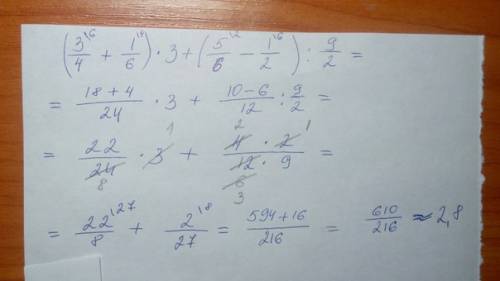 (3/4^{16} + 1/6^{14}) · 3 + (5/6^{12} - 1/2^{16}) : 9/2 =
= (18 + 4)/24 · 3 + (10 - 6)/12 : 9/2 =
= 22/24 8 · 3 1 + (4 2 · 2 1)/(12 6 3 · 9) =
= 22/8^{127} + 2/27^{18} = (594 + 16)/216 = 610/216 ≈ 2,8